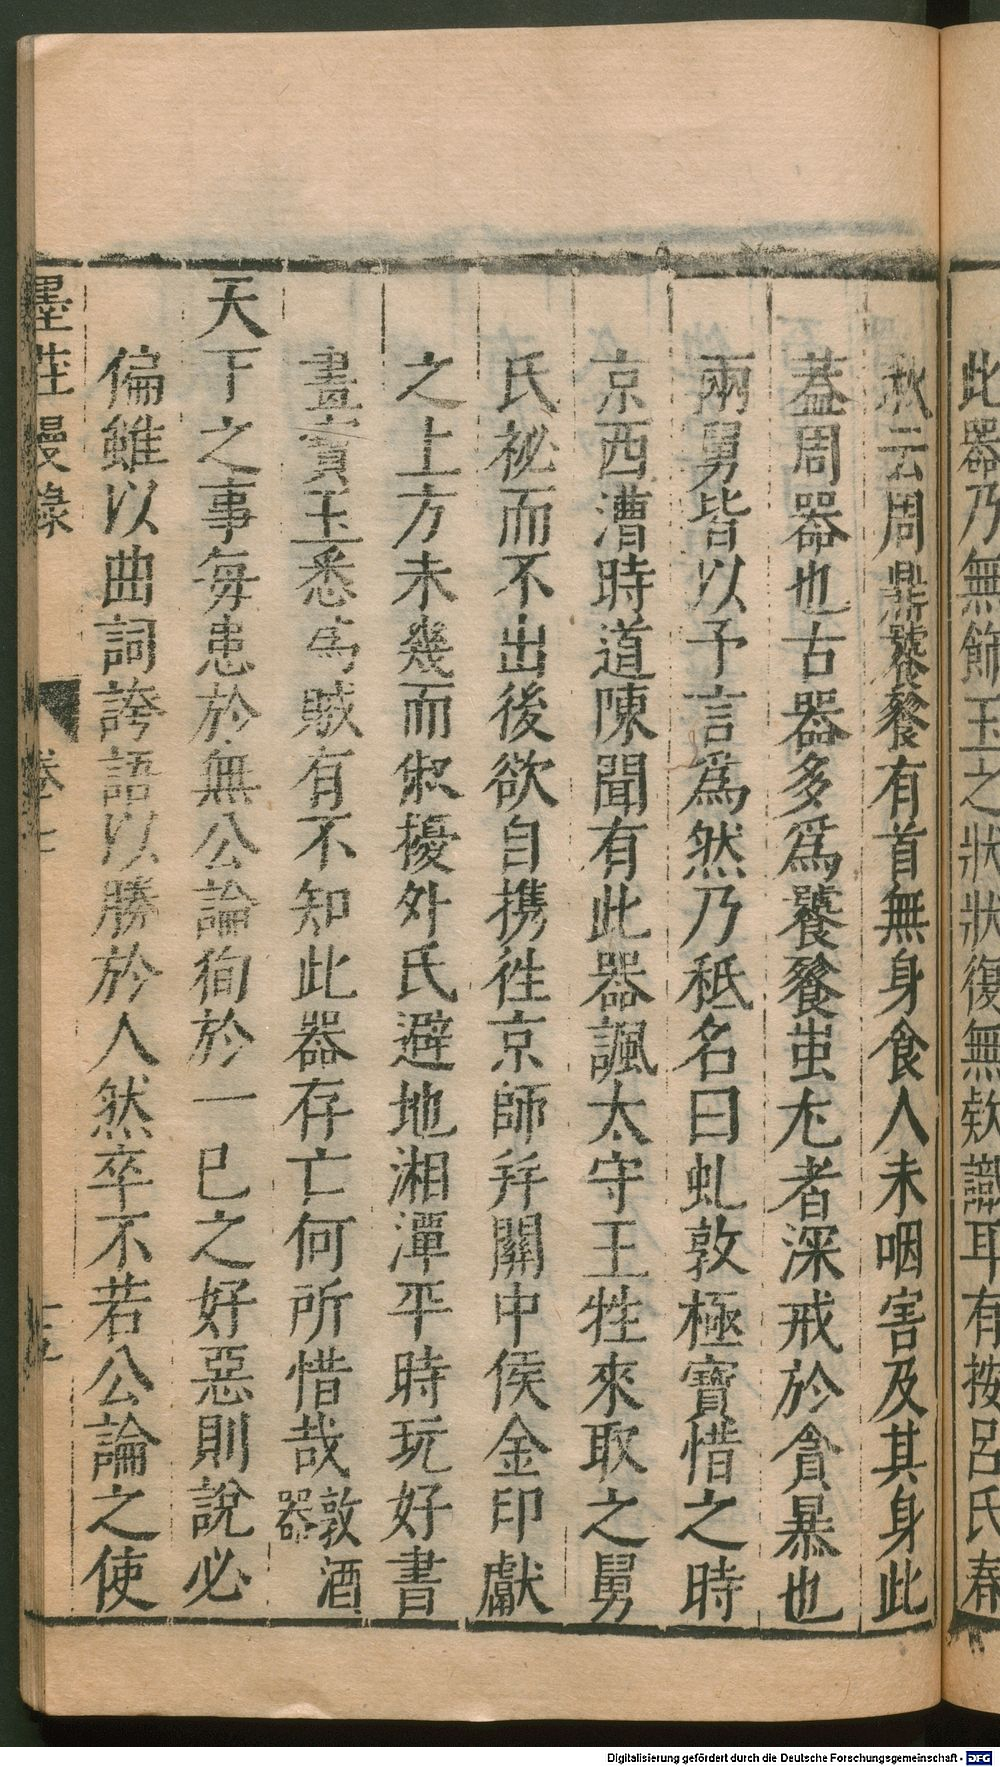 此器乃無飾玉之狀狀復無欵識耳有按呂氏春
秋云周鼎饕餮有首無身食人未咽害及其身此
蓋周器也古器多爲饕餮蚩尤者深戒於貪暴也
兩舅皆以予言爲然乃秪名曰虬敦極寶惜之時
京西漕時道陳聞有此器諷太守王牲來取之舅
氏祕而不出後欲自携徃京師并關中侯金印獻
之上方未幾而俶擾外氏避地湘潭平時玩好書
畫寳玉悉爲賊有不知此器存亡何所惜哉敦酒
器
天下之事每患於無公論狥於一已之好惡則說必
偏雖以曲詞誇語以勝於人然卒不若公論之使
墨莊漫錄
卷七
Digitalisierung gefördert durch die Deutsche Forschungsgemeinschaft - DFG